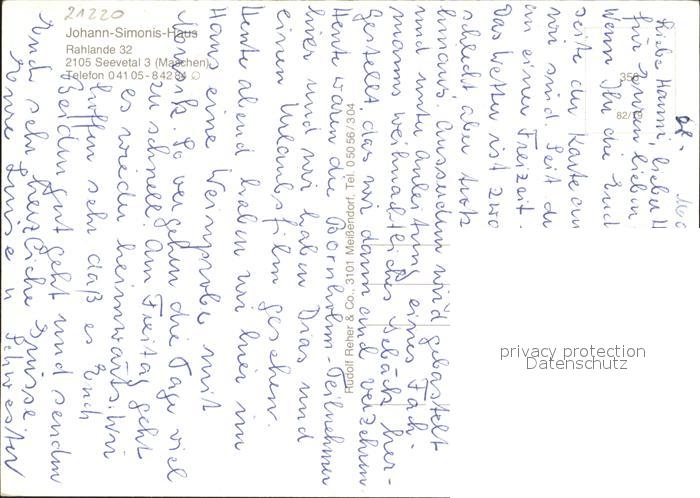 21220
Johann-Simonis-Haus
Rahlande 32
2105 Seevetal 3 (Maschen)
Telefon 04105-84284
Rudolf Reher & Co., 3101 Meißendorf, Tel. 05056/304
358
82/
Liebe Hanni, lieber H
für Euren lieben
Wenn Ihr die
Seite der Karte an
wir sind. Seit de
an einer Freizeit.
Das Wetter ist zwa
schlecht, aber trotz
hinaus. Ausserdem wird gebastelt
und unter Anleitung eines Fach-
manns weihnachtliches Gebäck her-
gestellt das wir dann auch verzehren.
Heute waren die Bornholm-Teilnehmer
hier und wir haben Dias und
einen Urlaubsfilm gesehen.
Heute abend haben wir hier im
Haus eine Weinprobe mit
Musik. So vergehen die Tage viel
zu schnell. Am Freitag geht
es wieder heimwärts. Wir
hoffen sehr daß es Euch
Beiden gut geht und senden
Euch sehr herzliche Grüsse
Eure Schwester
privacy protection
Datenschutz